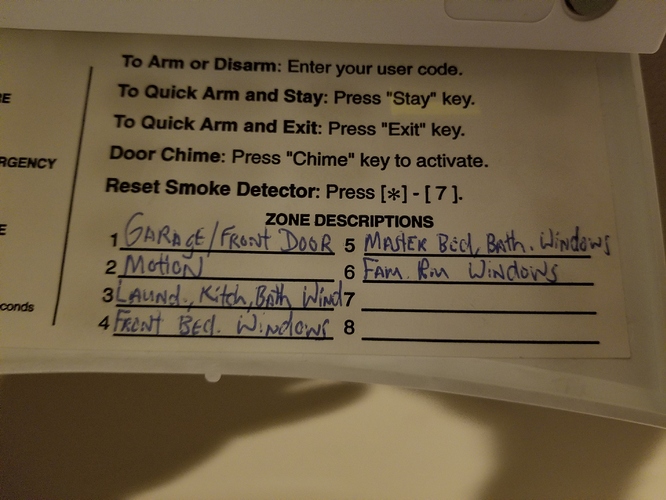 To Arm or Disarm: Enter your user code.
To Quick Arm and Stay: Press "Stay" key.
To Quick Arm and Exit: Press "Exit" key.
RGENCY
Door Chime: Press "Chime" key to activate.
Reset Smoke Detector: Press [*] - [ 7 ].
ZONE DESCRIPTIONS
1 GARAGE/FRONT DOOR 5 MASTER BED, BATH. WINDOWS
2 MOTION 6 FAM. RM WINDOWS
conds 3 LAUND., KITCH, BATH WIND 7
4 FRONT BED. WINDOWS 8